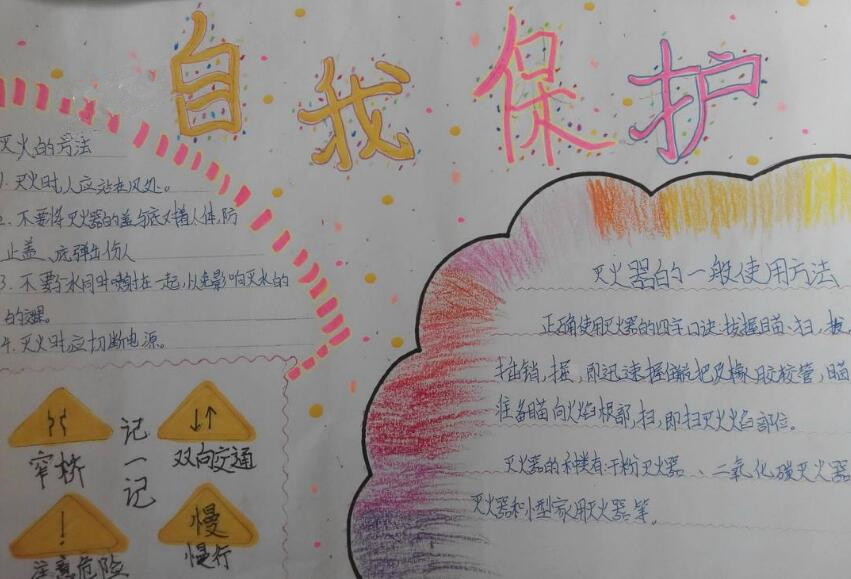 自我保护
灭火的方法
1.灭火时人应站在风处。
2.不要将灭火器的盖与底对着人体,防
止盖、底弹出伤人
3.不要与水同时喷射在一起,以免影响灭火的
的效果。
4.灭火时应切断电源。
窄桥
记一记
双向交通
!
注意危险
慢
慢行
灭火器的一般使用方法
正确使用灭火器的四字口诀:拔、握、瞄、扫,拔,
拔出销,握,即迅速握住把及橡胶软管,瞄
准备瞄向火焰根部,扫,即扫灭火焰部位。
灭火器的种类有:干粉灭火器、二氧化碳灭火器
灭火器和小型家用灭火器等。